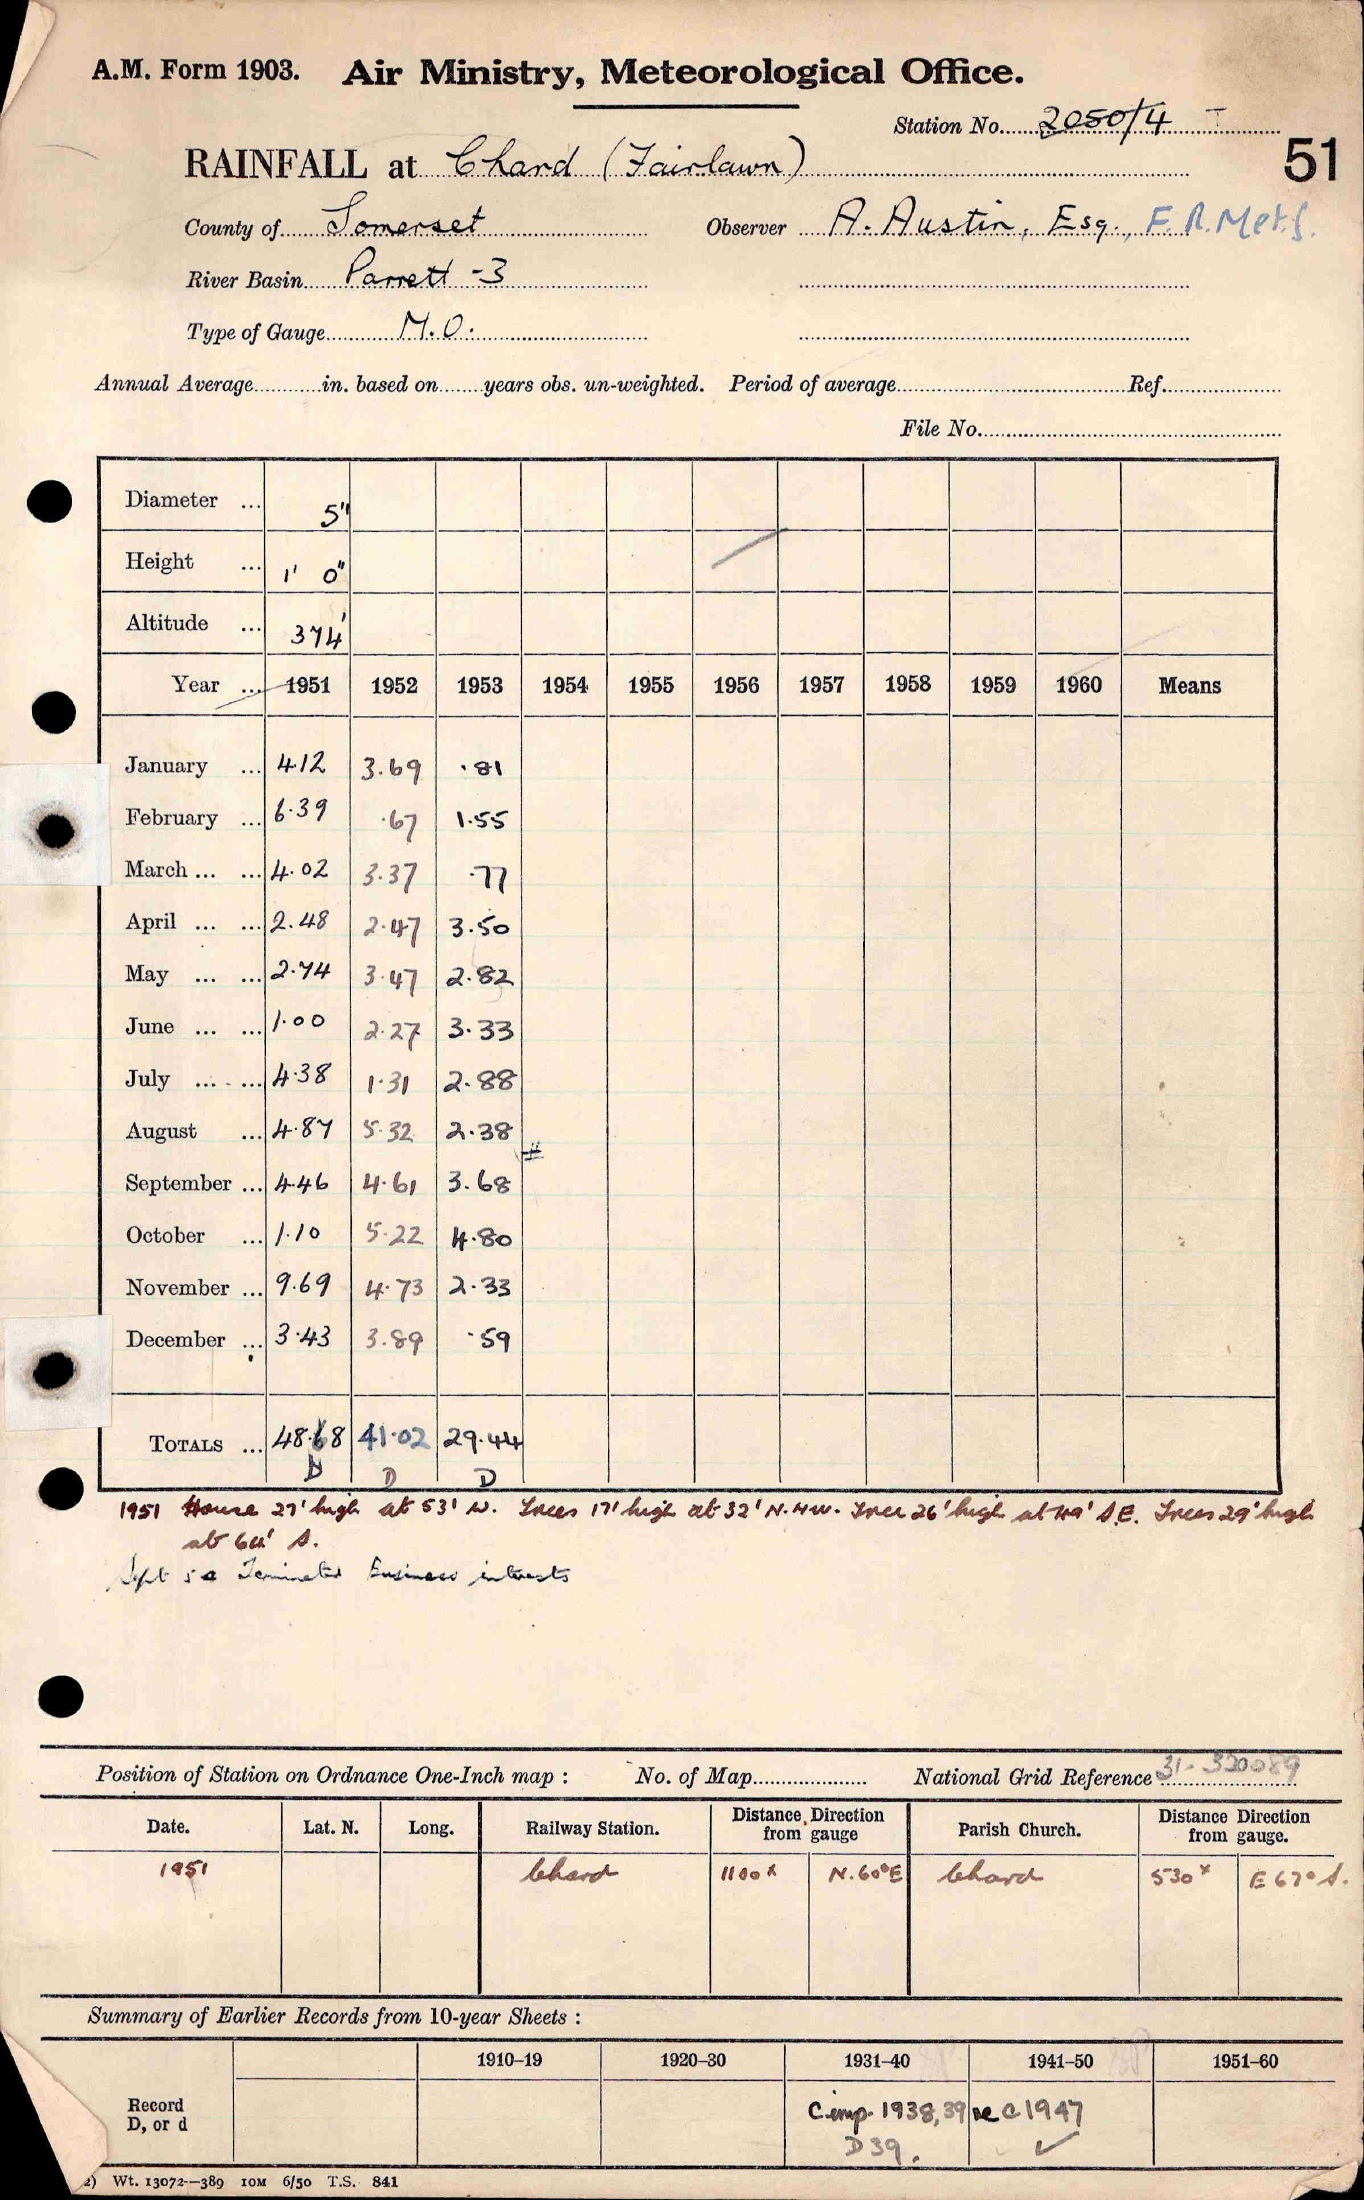 A.M. Form 1903. Air Ministry, Meteorological Office.
Station No. 2050/4 T
51
RAINFALL at Chard (Fairlawn)
County of Somerset Observer A. Austin, Esq., F.R.Met.S.
River Basin Parrett -3
Type of Gauge M.O.
Annual Average in. based on years obs. un-weighted. Period of average Ref.
File No.
Diameter ... 5"
Height ... 1' 0"
Altitude ... 374'
Year ... 1951 1952 1953 1954 1955 1956 1957 1958 1959 1960 Means
January ... 4.12 3.69 .81
February ... 6.39 .67 1.55
March ... ... 4.02 3.37 .77
April ... ... 2.48 2.47 3.50
May ... ... 2.74 3.47 2.82
June ... ... 1.00 2.27 3.33
July ... ... 4.38 1.31 2.88
August ... 4.87 5.32 2.38
September ... 4.46 4.61 3.68
October ... 1.10 5.22 4.80
November ... 9.69 4.73 2.33
December ... 3.43 3.89 .59
TOTALS ... 48.68 41.02 29.44
D D D
1951 House 27' high at 53' W. Trees 17' high at 32' N.NW. Tree 26' high at 49' S.E. Trees 29' high
at 64' S.
Sept 54 Terminated Business interests
Position of Station on Ordnance One-Inch map : No. of Map National Grid Reference 31-320089
Date. Lat. N. Long. Railway Station. Distance Direction from gauge Parish Church. Distance Direction from gauge.
1951 Chard 1100x N.60°E Chard 530x E 67° S.
Summary of Earlier Records from 10-year Sheets :
1910–19 1920–30 1931–40 1941–50 1951–60
Record D, or d
C. imp. 1938, 39 1947
D 39. ✓
Wt. 13072—389 10M 6/50 T.S. 841